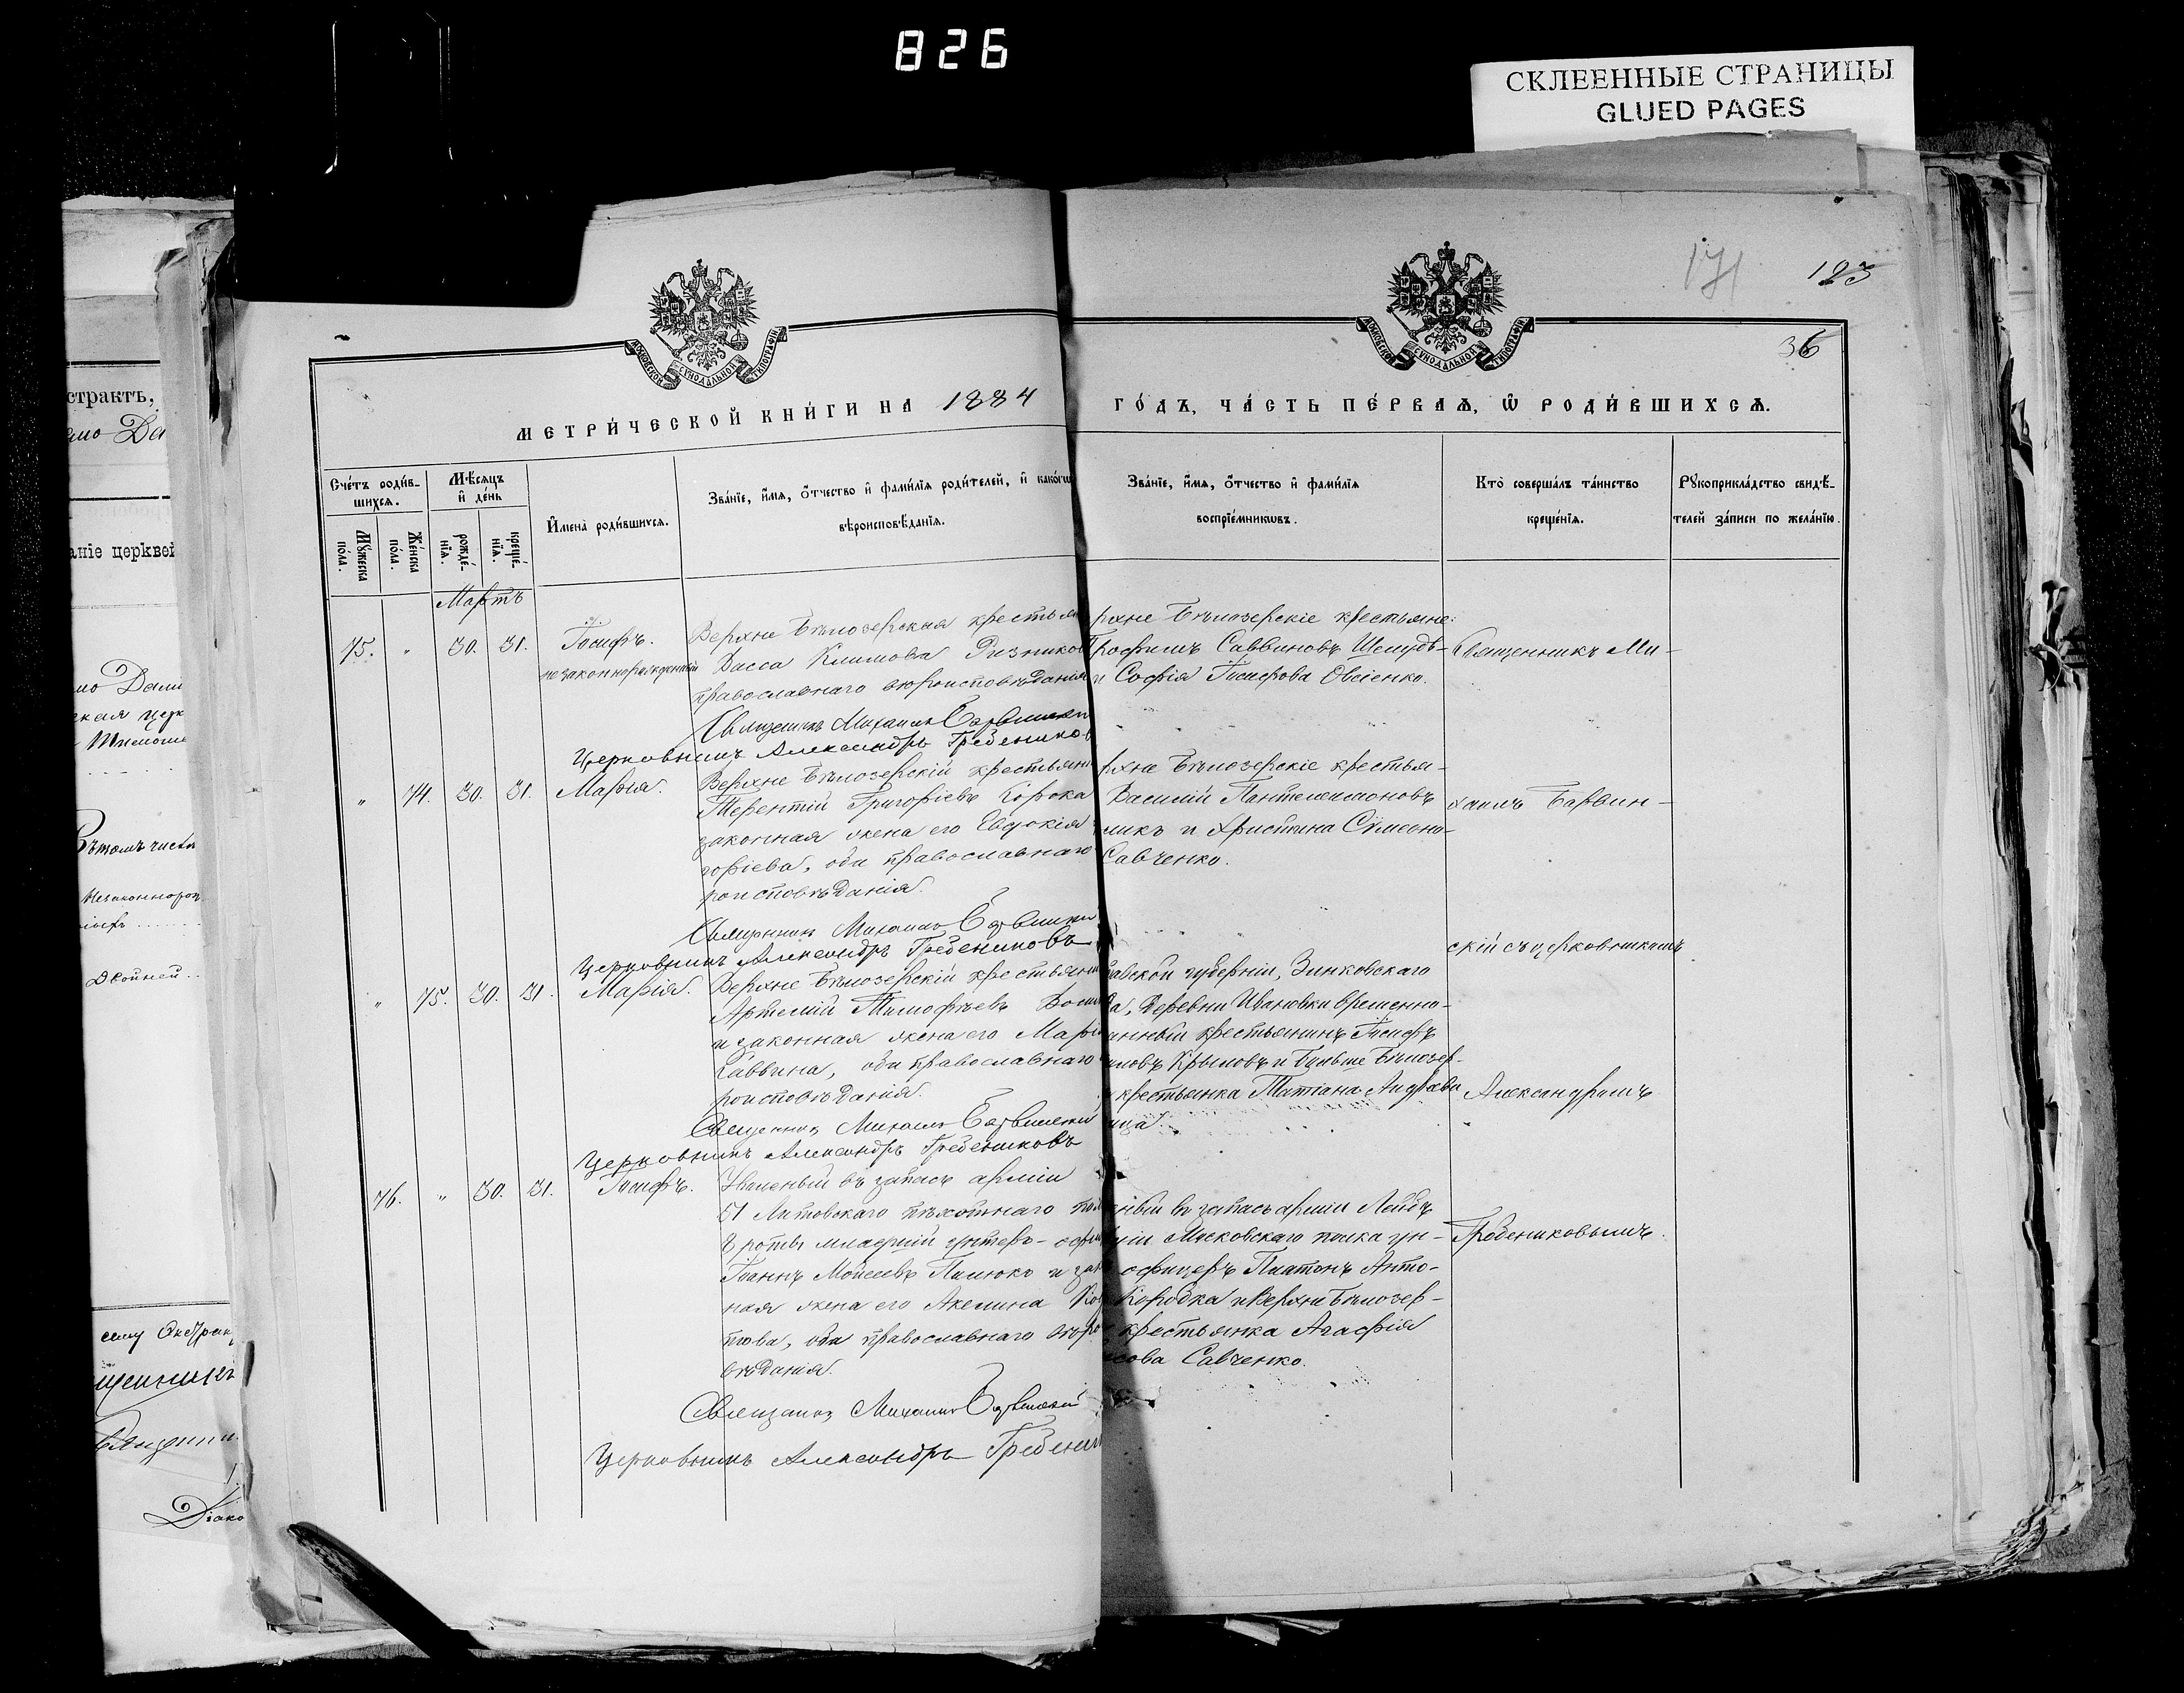 826
СКЛЕЕННЫЕ СТРАНИЦЫ
GLUED PAGES
171 123
36
МОСКОВСКОЙ СУНОДАЛЬНОЙ ТИПОГРАФІИ
МОСКОВСКОЙ СУНОДАЛЬНОЙ ТИПОГРАФІИ
МЕТРИ́ЧЕСКОЙ КНИ́ГИ НА 1884 ГО́ДЪ, ЧА́СТЬ ПЕ́РВАѦ, Ѡ РОДИ́ВШИХСѦ.
Сче́тъ роди́в-
шихсѧ.
Мꙋ́жеска
пола.
Же́нска
по́ла.
Мѣ́сѧцъ
и҆ де́нь
рожде́-
нїѧ.
креще́-
нїѧ.
И҆мена̀ роди́вшихсѧ.
Зва́нїе, и҆́мѧ, ѻ҆́тчество и҆ фами́лїѧ роди́телей, и҆ како́гѡ
вѣроисповѣ́данїѧ.
Зва́нїе, и҆́мѧ, ѻ҆́тчество и҆ фами́лїѧ
воспрїе́мникѡвъ.
Кто̀ соверша́лъ та́инство
креще́нїѧ.
Рꙋкоприкла́дство свидѣ́-
телей за́писи по жела́нїю.
Мартъ
75. " 30. 31. Іосифъ.
незаконнорожденный
Верхне Бѣлозерская крестьян
Васса Климова Ризников
православнаго вѣроисповѣданія
Священникъ Михаилъ Барвинскій
Церковникъ Александръ Гребениковъ
рхне Бѣлозерскіе крестьяне:
Трофимъ Саввиновъ Шелудь-
и Софія Іосифова Овсіенко.
Священникъ Ми-
" 74. 30. 31. Марія.
Верхне Бѣлозерскій крестьяни
Терентій Григоріевъ Корока
законная жена его Евдокія
горіева, оба православнаго
роисповѣданія.
Священникъ Михаилъ Барвинскій
Церковникъ Александръ Гребениковъ
рхне Бѣлозерскіе крестья-
Василій Пантелеимоновъ
никъ и Христина Сѵмеоно-
Савченко.
хаилъ Барвин-
" 75. 30. 31. Марія.
Верхне Бѣлозерскій крестьяни
Артемій Тимофѣевъ
и законная жена его Марі
Саввина, оба православнаго
роисповѣданія.
Священникъ Михаилъ Барвинскій
Церковникъ Александръ Гребениковъ
авской губерніи, Зинковскаго
да, деревни Ивановки временно-
анный крестьянинъ Іосифъ
мовъ Крыловъ и Больше Бѣлозер-
крестьянка Татіана Андреева
ица.
скій съ церковникомъ
Александромъ
76. " 30. 31. Іосифъ.
Уволенный въ запасъ арміи
51 Литовскаго пѣхотнаго пол
роты младшій унтеръ-офи
Іоаннъ Моисеевъ Пилюкъ и зак
ная жена его Акелина
това, оба православнаго вѣро
вѣданія.
Священникъ Михаилъ Барвинскій
Церковникъ Александръ Гребени
ный въ запасъ арміи Лейбъ
діи Московскаго полка ун-
офицеръ Платонъ Анто-
Коробка и Верхне Бѣлозер-
крестьянка Агафія
сова Савченко.
Гребениковымъ.
страктъ,
аніе церквей
Двойней